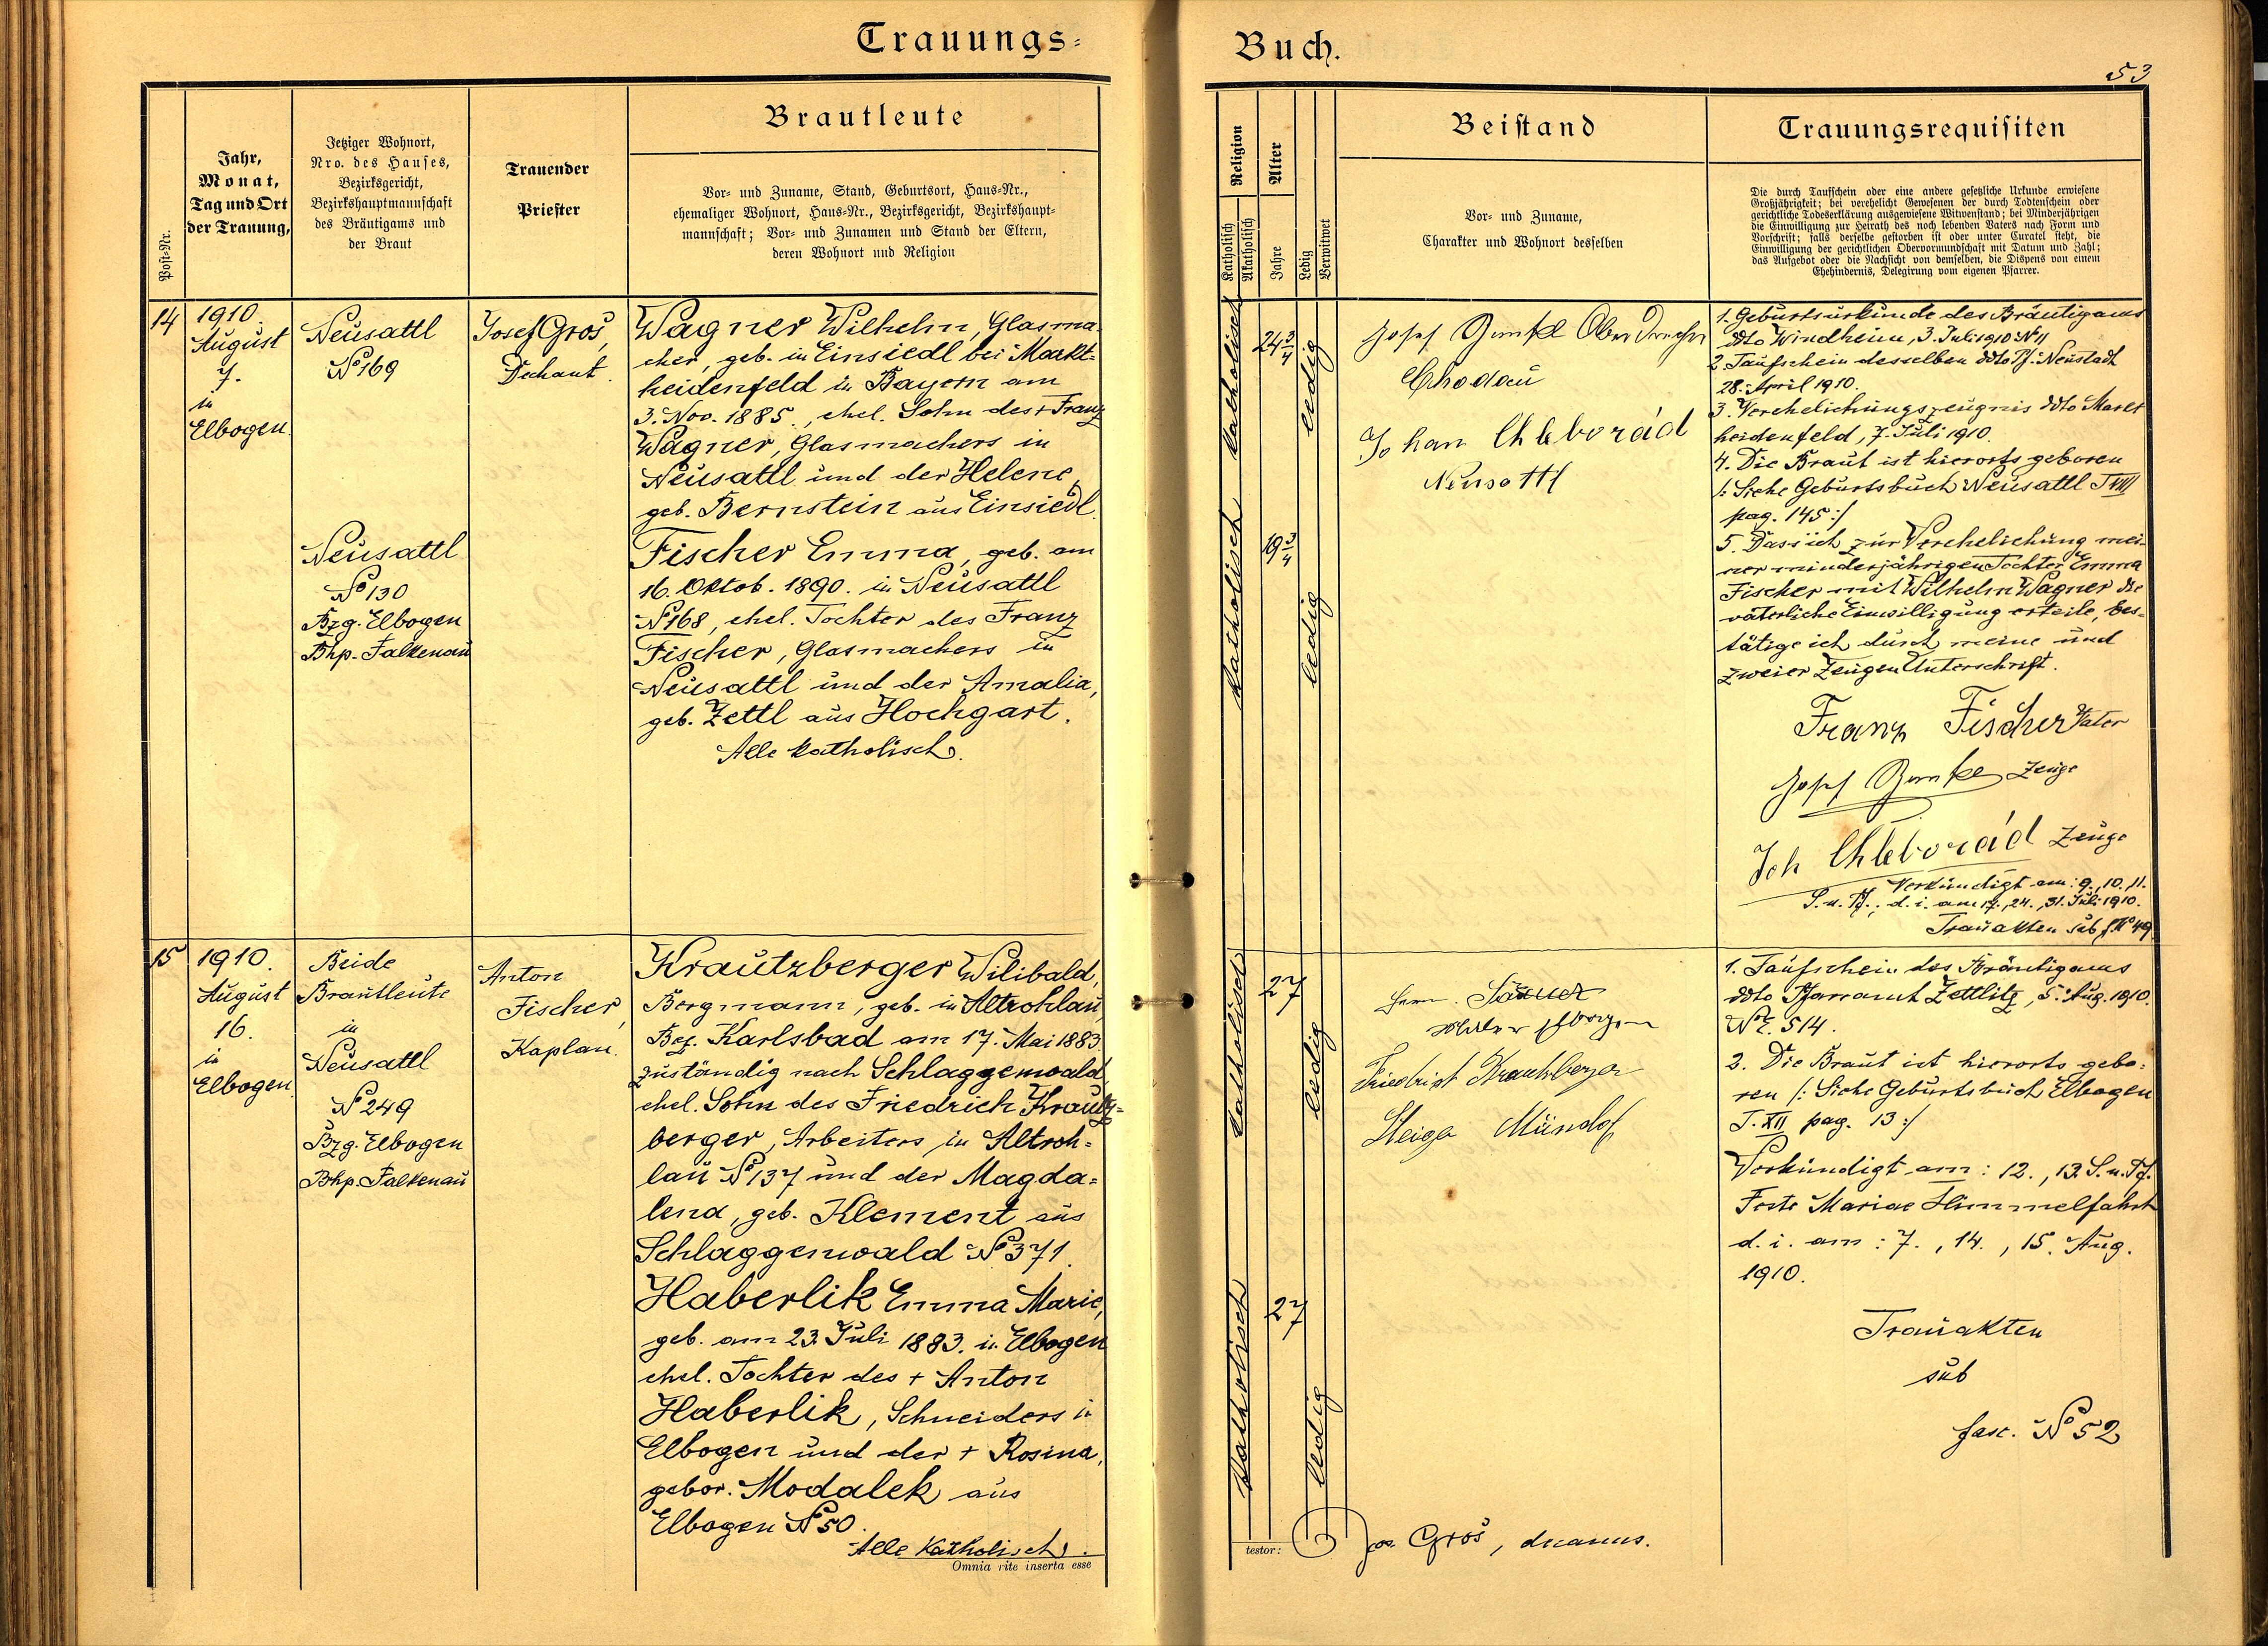 Trauungs-
Post-Nr.
Jahr,
Monat,
Tag und Ort
der Trauung,
Jetziger Wohnort,
Nro. des Hauses,
Bezirksgericht,
Bezirkshauptmannschaft
des Bräutigams und
der Braut
Trauender
Priester
Brautleute
Vor- und Zuname, Stand, Geburtsort, Haus-Nr.,
ehemaliger Wohnort, Haus-Nr., Bezirksgericht, Bezirkshaupt-
mannschaft; Vor- und Zunamen und Stand der Eltern,
deren Wohnort und Religion
14
1910.
August
7.
in
Elbogen.
Neusattl
No 169
Neusattl
No 130
Bzg. Elbogen
Bhp. Falkenau
Josef Gros,
Dechant.
Wagner Wilhelm, Glasma-
cher, geb. in Einsiedl bei Markt-
heidenfeld in Bayern am
3. Nov. 1885., ehel. Sohn des + Franz
Wagner, Glasmachers in
Neusattl und der Helene,
geb. Bernstein aus Einsiedl.
Fischer Emma, geb. am
16. Oktob. 1890. in Neusattl
No 168, ehel. Tochter des Franz
Fischer, Glasmachers in
Neusattl und der Amalia,
geb. Zettl aus Hochgart.
Alle katholisch.
15
1910.
August
16.
in
Elbogen
Beide
Brautleute
in
Neusattl
No 249
Bzg. Elbogen
Bhp. Falkenau
Anton
Fischer,
Kaplan.
Krautzberger Wilibald,
Bergmann, geb. in Altrohlau,
Bez. Karlsbad am 17. Mai 1883
zuständig nach Schlaggenwald,
ehel. Sohn des Friedrich Krautz-
berger, Arbeiters in Altroh-
lau No 137 und der Magda-
lena, geb. Klement aus
Schlaggenwald No 371.
Haberlik Emma Marie,
geb. am 23. Juli 1883. in Elbogen
ehel. Tochter des + Anton
Haberlik, Schneiders in
Elbogen und der + Rosina,
gebor. Modalek aus
Elbogen No 50.
Alle Katholisch.
Omnia rite inserta esse
Buch.
53
Religion
Katholisch
Akatholisch
Alter
Jahre
Ledig
Verwitwet
Beistand
Vor- und Zuname,
Charakter und Wohnort desselben
Trauungsrequisiten
Die durch Taufschein oder eine andere gesetzliche Urkunde erwiesene
Großjährigkeit; bei verehelicht Gewesenen der durch Todtenschein oder
gerichtliche Todeserklärung ausgewiesene Witwenstand; bei Minderjährigen
die Einwilligung zur Heirath des noch lebenden Vaters nach Form und
Vorschrift; falls derselbe gestorben ist oder unter Curatel steht, die
Einwilligung der gerichtlichen Obervormundschaft mit Datum und Zahl;
das Aufgebot oder die Nachsicht von demselben, die Dispens von einem
Ehehindernis, Delegirung vom eigenen Pfarrer.
katholisch
24 3/4
ledig
katholisch
19 3/4
ledig
Josef
Chodau
Johan Chleborád
Neusattl
1. Geburtsurkunde des Bräutigams
ddto Windheim, 3. Juli 1910 No 11
2. Taufschein desselben ddto Pf. Neustadt
28. April 1910.
3. Verehelichungszeugnis ddto Markt
heidenfeld, 7. Juli 1910.
4. Die Braut ist hierorts geboren
/: Siehe Geburtsbuch Neusattl T VIII
pag. 145 :/
5. Dass ich zur Verehelichung mei-
ner minderjährigen Tochter Emma
Fischer mit Wilhelm Wagner die
väterliche Einwilligung erteile, bes-
tätige ich durch meine und
zweier Zeugen Unterschrift.
Franz Fischer Vater
Josef Zeuge
Joh Chleborád Zeuge
Verkündigt am: 9., 10., 11.
S. n. Pf., d. i. am 17., 24., 31. Juli 1910.
Trauakten sub f. No 49
katholisch
27
ledig
katholisch
27
ledig
Friedrich Krautzberger
Steiger
1. Taufschein des Bräutigams
ddto Pfarramt Zettlitz, 5. Aug. 1910.
Nr. 514.
2. Die Braut ist hierorts gebo-
ren /: Siehe Geburtsbuch Elbogen
T. XII pag. 13 :/
Verkündigt am: 12., 13. S. n. Pf.
Feste Mariae Himmelfahrt
d. i. am: 7., 14., 15. Aug.
1910.
Trauakten
sub
fasc. No 52
testor:
Jos. Gros, decanus.